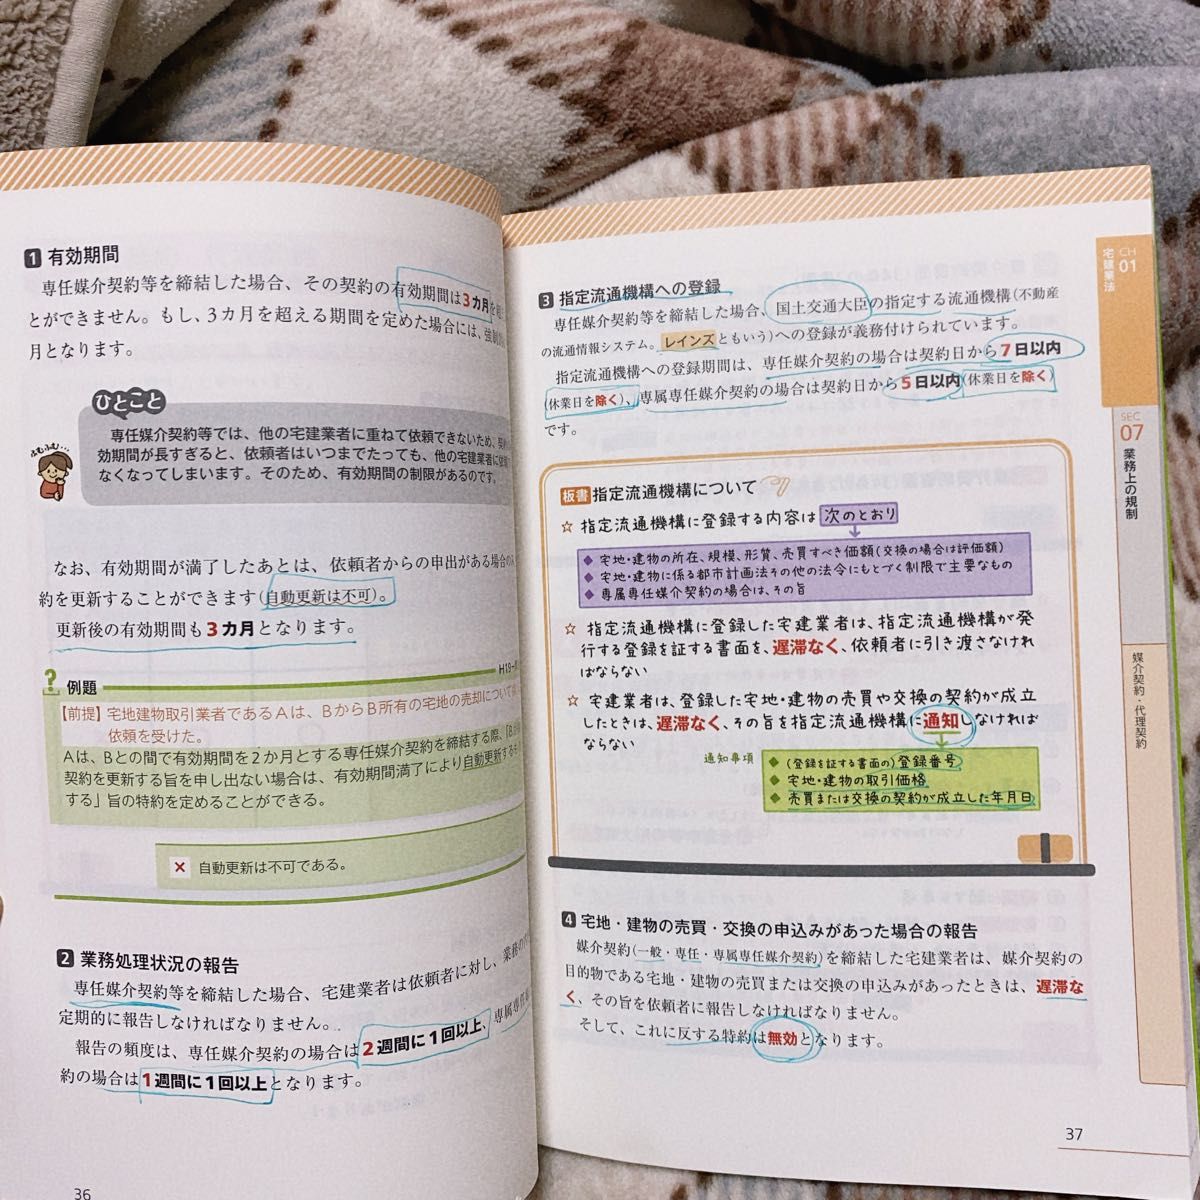 1 有効期間
専任媒介契約等を締結した場合、その契約の有効期間は3カ月を
とができません。もし、3カ月を超える期間を定めた場合には、強制
月となります。
ひとこと
ふむふむ…
専任媒介契約等では、他の宅建業者に重ねて依頼できないため、契
効期間が長すぎると、依頼者はいつまでたっても、他の宅建業者に
なくなってしまいます。そのため、有効期間の制限があるのです。
なお、有効期間が満了したあとは、依頼者からの申出がある場合の
約を更新することができます(自動更新は不可)。
更新後の有効期間も3カ月となります。
例題
H19-
【前提】宅地建物取引業者であるAは、BからB所有の宅地の売却について
依頼を受けた。
Aは、Bとの間で有効期間を2か月とする専任媒介契約を締結する際、「Bが
契約を更新する旨を申し出ない場合は、有効期間満了により自動更新する
する」旨の特約を定めることができる。
× 自動更新は不可である。
2 業務処理状況の報告
専任媒介契約等を締結した場合、宅建業者は依頼者に対し、業務の
定期的に報告しなければなりません。
報告の頻度は、専任媒介契約の場合は2週間に1回以上、専属専
約の場合は1週間に1回以上となります。
36
3 指定流通機構への登録
専任媒介契約等を締結した場合、国土交通大臣の指定する流通機構(不動産
の流通情報システム。レインズともいう)への登録が義務付けられています。
指定流通機構への登録期間は、専任媒介契約の場合は契約日から7日以内
(休業日を除く)、専属専任媒介契約の場合は契約日から5日以内(休業日を除く)
です。
板書 指定流通機構について
☆ 指定流通機構に登録する内容は 次のとおり
◆ 宅地・建物の所在、規模、形質、売買すべき価額(交換の場合は評価額)
◆ 宅地・建物に係る都市計画法その他の法令にもとづく制限で主要なもの
◆ 専属専任媒介契約の場合は、その旨
☆ 指定流通機構に登録した宅建業者は、指定流通機構が発
行する登録を証する書面を、遅滞なく、依頼者に引き渡さなけれ
ばならない
☆ 宅建業者は、登録した宅地・建物の売買や交換の契約が成立
したときは、遅滞なく、その旨を指定流通機構に通知しなければ
ならない
通知事項
◆ (登録を証する書面の)登録番号
◆ 宅地・建物の取引価格
◆ 売買または交換の契約が成立した年月日
4 宅地・建物の売買・交換の申込みがあった場合の報告
媒介契約(一般・専任・専属専任媒介契約)を締結した宅建業者は、媒介契約の
目的物である宅地・建物の売買または交換の申込みがあったときは、遅滞な
く、その旨を依頼者に報告しなければなりません。
そして、これに反する特約は無効となります。
37
CH
01
宅建業法
SEC
07
業務上の規制
媒介契約・代理契約